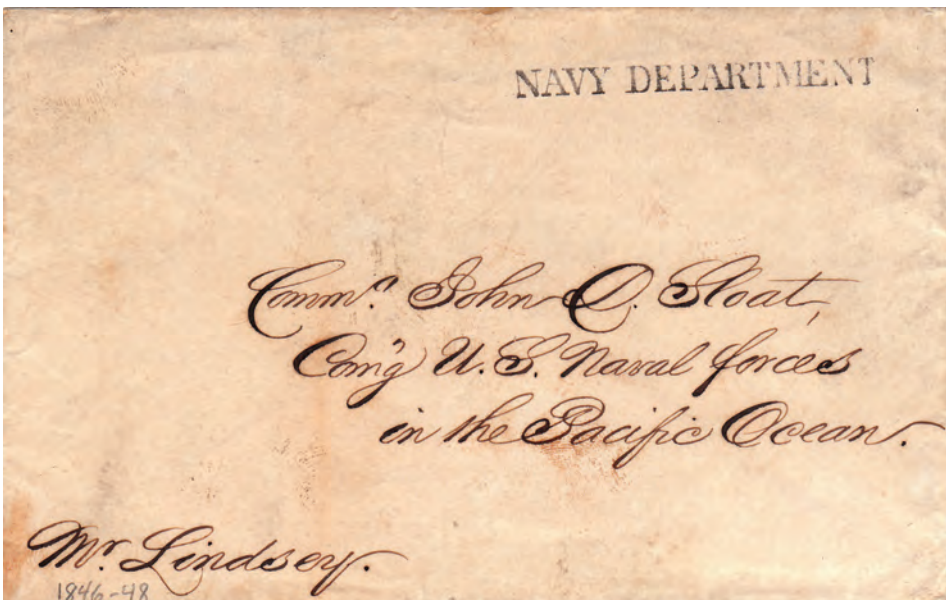 NAVY DEPARTMENT
Comm.ᵉ John D. Sloat,
Com'g U.S. Naval forces
in the Pacific Ocean.
Mr. Lindsey.
1846-48